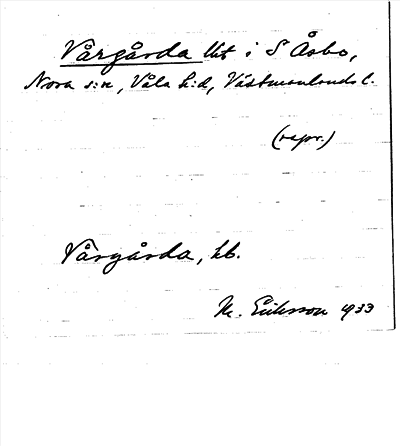 Vårgårda lht i S Åsbo,
Nora s:n, Våla h:d, Västmanlands l.
(uspr.)
Vårgårda, hb.
M. Eriksson 1933